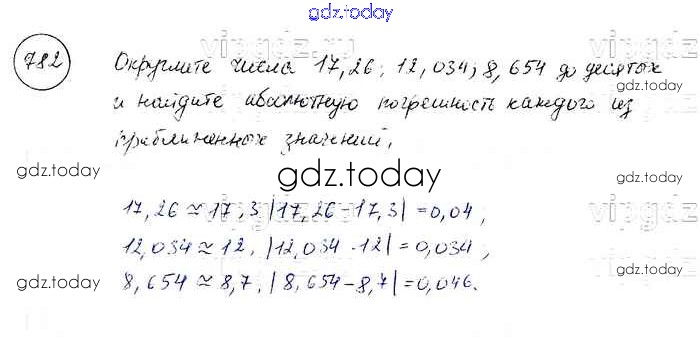 gdz.today
782
Округлите числа 17,26; 12,034; 8,654 до десятых
и найдите абсолютную погрешность каждого из
приближенных значений.
gdz.today
gdz.today
gdz.today
17,26 ≈ 17,3 |17,26 - 17,3| = 0,04,
12,034 ≈ 12, |12,034 - 12| = 0,034,
gdz.today
gdz.today
8,654 ≈ 8,7, |8,654 - 8,7| = 0,046.